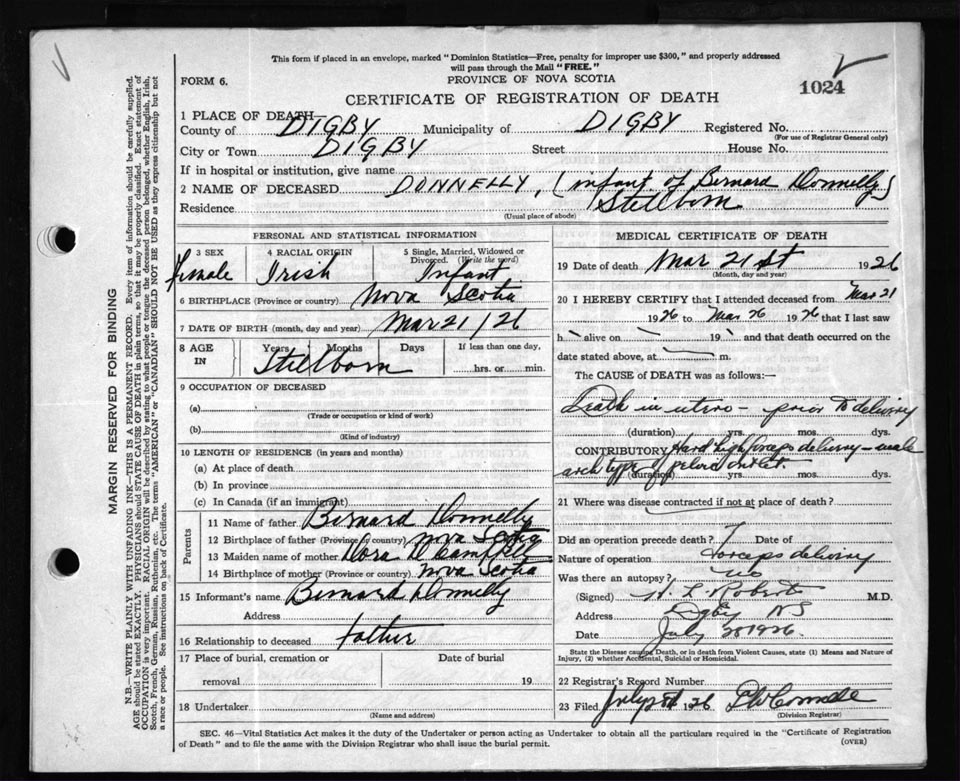 This form if placed in an envelope, marked "Dominion Statistics—Free, penalty for improper use $300," and properly addressed
will pass through the Mail "FREE."
FORM 6.
PROVINCE OF NOVA SCOTIA
1024
CERTIFICATE OF REGISTRATION OF DEATH
1 PLACE OF DEATH—
County of DIGBY Municipality of DIGBY Registered No.
(For use of Registrar General only)
City or Town DIGBY Street House No.
If in hospital or institution, give name
2 NAME OF DECEASED DONNELLY, (infant of Bernard Donnelly)
Residence Stillborn
(Usual place of abode)
PERSONAL AND STATISTICAL INFORMATION
3 SEX 4 RACIAL ORIGIN 5 Single, Married, Widowed or Divorced. (Write the word)
female Irish Infant
6 BIRTHPLACE (Province or country) Nova Scotia
7 DATE OF BIRTH (month, day and year) Mar 21/26
8 AGE IN Years Months Days If less than one day,
Stillborn hrs. or min.
9 OCCUPATION OF DECEASED
(a)
(Trade or occupation or kind of work)
(b)
(Kind of industry)
10 LENGTH OF RESIDENCE (in years and months)
(a) At place of death
(b) In province
(c) In Canada (if an immigrant)
Parents
11 Name of father Bernard Donnelly
12 Birthplace of father (Province or country) Nova Scotia
13 Maiden name of mother Dora D Campbell
14 Birthplace of mother (Province or country) Nova Scotia
15 Informant's name Bernard Donnelly
Address
16 Relationship to deceased father
17 Place of burial, cremation or Date of burial
removal 19
18 Undertaker
(Name and address)
MEDICAL CERTIFICATE OF DEATH
19 Date of death Mar 21st 1926
(Month, day and year)
20 I HEREBY CERTIFY that I attended deceased from Mar 21
1926 to Mar 26 1926 that I last saw
h alive on 19 and that death occurred on the
date stated above, at m.
The CAUSE OF DEATH was as follows:—
Death in utero – prior to delivery
(duration) yrs. mos. dys.
CONTRIBUTORY Hard high forceps delivery – male
arch type of pelvic outlet.
(duration) yrs. mos. dys.
21 Where was disease contracted if not at place of death?
Did an operation precede death? Date of
Nature of operation forceps delivery
Was there an autopsy? no
(Signed) L. Roberts M.D.
Address Digby NS
Date July 1926.
State the Disease causing Death, or in death from Violent Causes, state (1) Means and Nature of
Injury, (2) whether Accidental, Suicidal or Homicidal.
22 Registrar's Record Number
23 Filed July 1926
(Division Registrar)
SEC. 46—Vital Statistics Act makes it the duty of the Undertaker or person acting as Undertaker to obtain all the particulars required in the "Certificate of Registration
of Death" and to file the same with the Division Registrar who shall issue the burial permit.
(OVER)
MARGIN RESERVED FOR BINDING
N.B.—WRITE PLAINLY WITH UNFADING INK—THIS IS A PERMANENT RECORD. Every item of information should be carefully supplied.
AGE should be stated EXACTLY. PHYSICIANS should STATE CAUSE OF DEATH in plain terms, so that it may be properly classified. Exact statement of
OCCUPATION is very important. RACIAL ORIGIN will be described by stating to what people or tongue the deceased person belonged, whether English, Irish,
Scotch, French, German, Russian, Ruthenian, etc. The terms "AMERICAN" or "CANADIAN" SHOULD NOT BE USED as they express citizenship but not
a race or people. See instructions on back of Certificate.